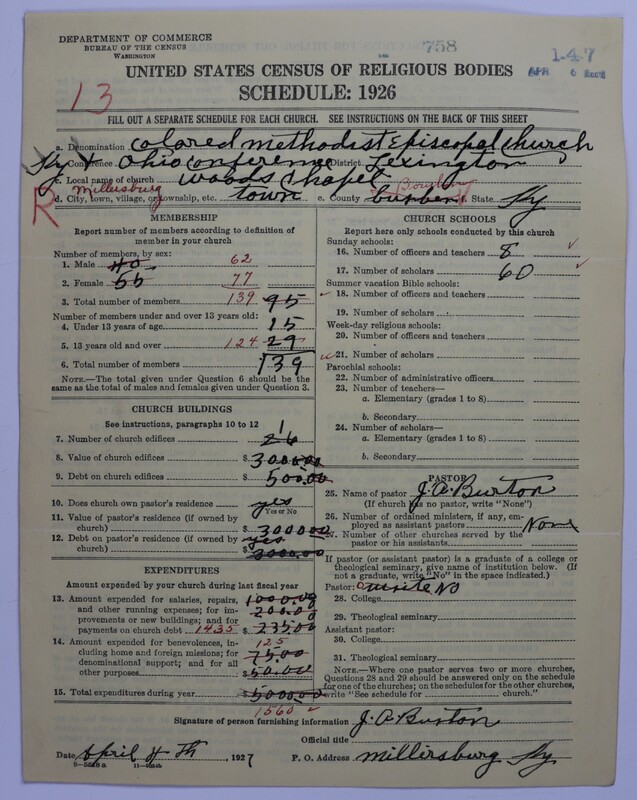 DEPARTMENT OF COMMERCE
BUREAU OF THE CENSUS
WASHINGTON
758
1-4-7
APR 6
UNITED STATES CENSUS OF RELIGIOUS BODIES
13
SCHEDULE: 1926
FILL OUT A SEPARATE SCHEDULE FOR EACH CHURCH. SEE INSTRUCTIONS ON THE BACK OF THIS SHEET
a. Denomination colored methodist Episcopal church
b. Conference Ky & Ohio conference District Lexington
c. Local name of church woods chapel
R Millersburg Bourbon
d. City, town, village, or township, etc. town e. County f. State Ky
MEMBERSHIP
Report number of members according to definition of member in your church
Number of members, by sex:
1. Male 40 62
2. Female 55 77
3. Total number of members 139 95
Number of members under and over 13 years old:
4. Under 13 years of age 15
5. 13 years old and over 124 29
6. Total number of members 139
NOTE.—The total given under Question 6 should be the same as the total of males and females given under Question 3.
CHURCH BUILDINGS
See instructions, paragraphs 10 to 12
7. Number of church edifices 1
8. Value of church edifices $ 3000.00
9. Debt on church edifices $ 500.00
10. Does church own pastor's residence yes
Yes or No
11. Value of pastor's residence (if owned by church) $ 3000.00
12. Debt on pastor's residence (if owned by church) yes $ 3000.00
EXPENDITURES
Amount expended by your church during last fiscal year
13. Amount expended for salaries, repairs, and other running expenses; for improvements or new buildings; and for payments on church debt 1435 $ 1000.00 200.00 235.00
14. Amount expended for benevolences, including home and foreign missions; for denominational support; and for all other purposes 125 75.00 $ 50.00
15. Total expenditures during year $ 5000.00
1560
CHURCH SCHOOLS
Report here only schools conducted by this church
Sunday schools:
16. Number of officers and teachers 8
17. Number of scholars 60
Summer vacation Bible schools:
18. Number of officers and teachers
19. Number of scholars
Week-day religious schools:
20. Number of officers and teachers
21. Number of scholars
Parochial schools:
22. Number of administrative officers
23. Number of teachers—
a. Elementary (grades 1 to 8)
b. Secondary
24. Number of scholars—
a. Elementary (grades 1 to 8)
b. Secondary
PASTOR
25. Name of pastor J. A. Burton
(If church has no pastor, write "None")
26. Number of ordained ministers, if any, employed as assistant pastors None
27. Number of other churches served by the pastor or his assistants
If pastor (or assistant pastor) is a graduate of a college or theological seminary, give name of institution below. (If not a graduate, write "No" in the space indicated.)
Pastor: write No
28. College
29. Theological seminary
Assistant pastor:
30. College
31. Theological seminary
NOTE.—Where one pastor serves two or more churches, Questions 28 and 29 should be answered only on the schedule for one of the churches; on the schedules for the other churches, write "See schedule for church."
Signature of person furnishing information J. A. Burton
Official title
Date April 4th, 1927 P. O. Address Millersburg Ky